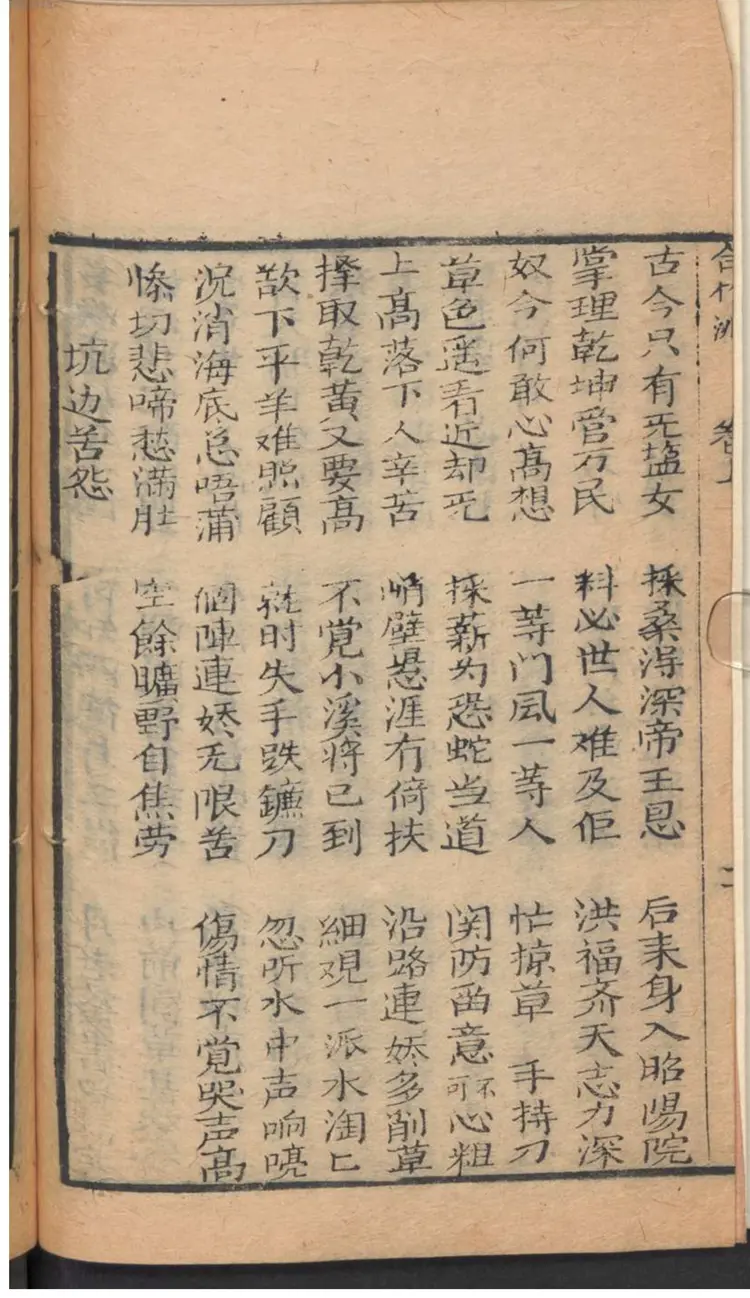 古今只有无塩女 採桑淂深帝王恩 后来身入昭陽院
掌理乾坤管万民 料必世人难及佢 洪福齐天志力深
奴今何敢心髙想 一等门凨一等人 忙掠草 手持刀
草色遥看近却无 採薪为恐蛇当道 関防畄意不可心粗
上髙落下人辛苦 峭壁悬涯冇倚扶 沿路連娇多削草
擇取乾黄又要髙 不覚小溪将已到 細观一派水淘匕
歆下平羊难照顧 就时失手跌鐮刀 忽听水中声响喨
沉消海底总唔蒲 個陣連娇无限苦 傷情不覚哭声髙
惨切悲啼愁满肚 空餘曠野自焦劳
坑边苦怨